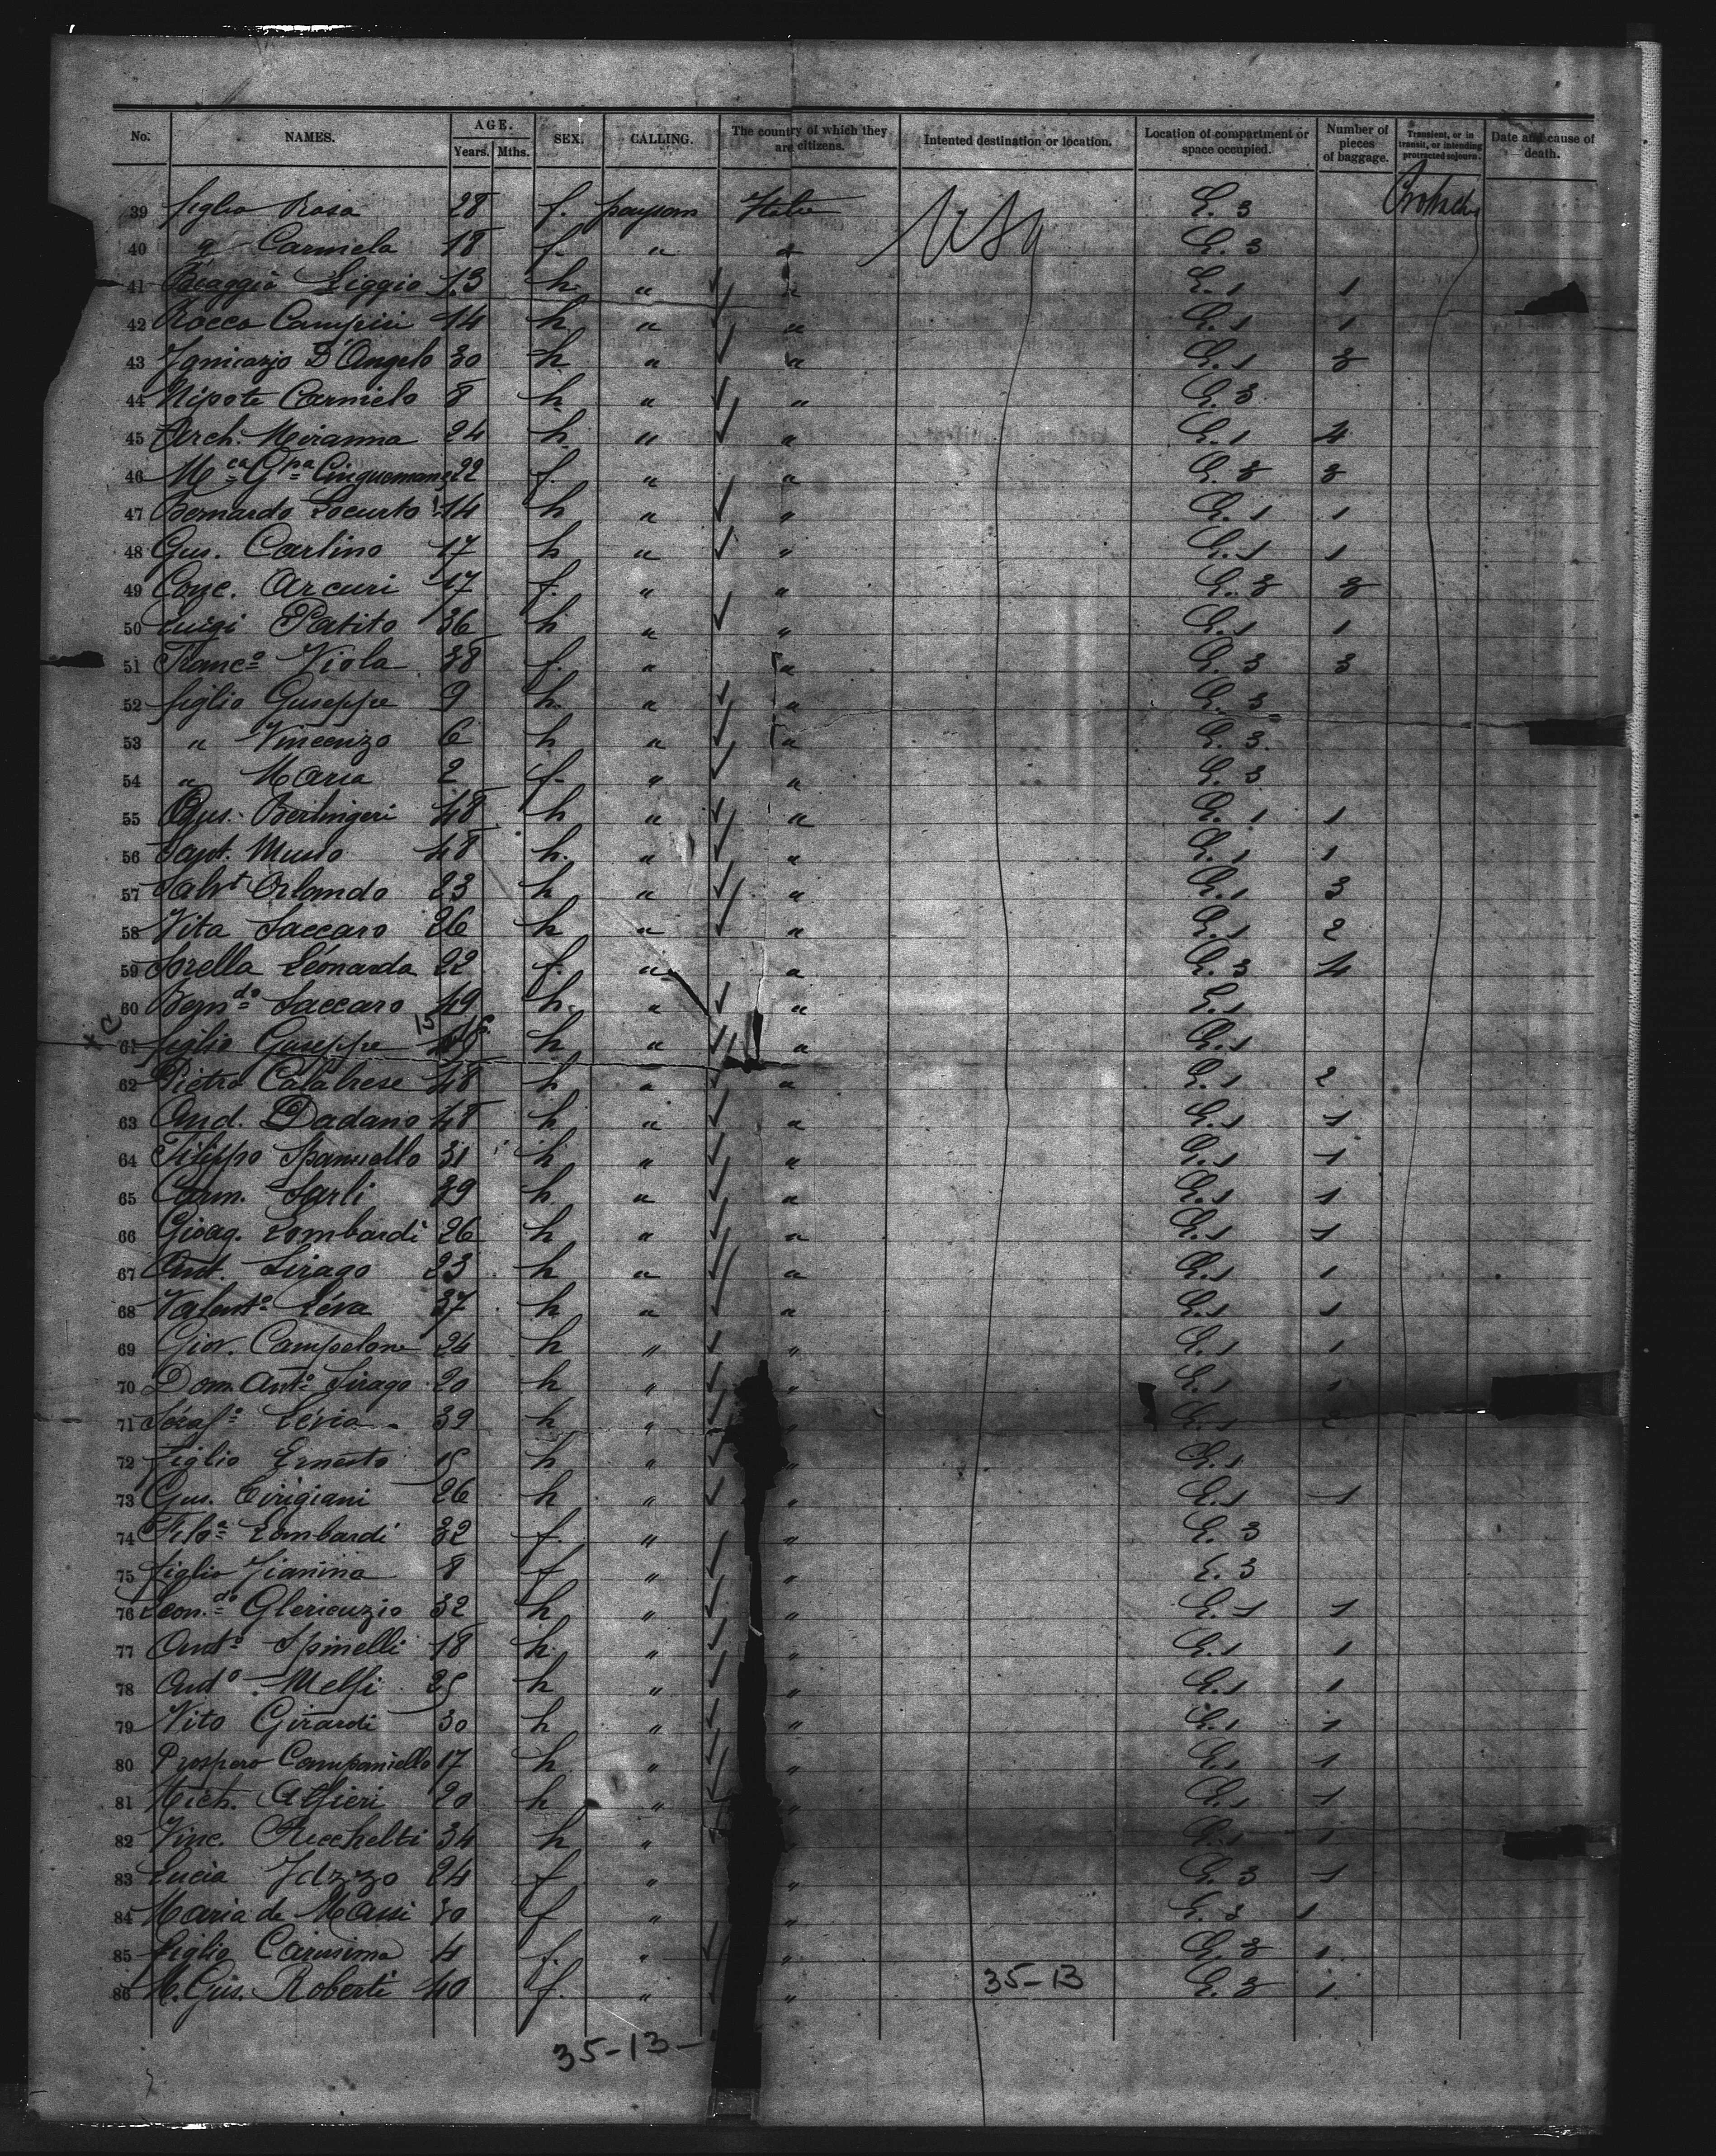 No. NAMES. AGE. Years. Mths. SEX. CALLING. The country of which they are citizens. Intented destination or location. Location of compartment or space occupied. Number of pieces of baggage. Transient, or in transit, or intending protracted sojourn. Date and cause of death.
39 figlia Rosa 28 f. Italie USA E. 3
40 " Carmela 18 f. " " E. 3
41 Liggio 13 h. " " E. 1 1
42 Rocco Campisi 14 h " " E. 1 1
43 D'Angelo 30 h " " E. 1 3
44 Nipote Carmelo 8 h " " E. 3
45 Arch. Miranna 24 h " " E. 1 4
46 Mca Gpa Cinquemani 22 f. " " E. 3 3
47 Bernardo Locurto 14 h " " E. 1 1
48 Gus. Carlino 17 h " " E. 1 1
49 Conc. Arcuri 17 f. " " E. 3 3
50 Luigi Patito 36 h " " E. 1 1
51 Franco Viola 38 f. " " E. 3 3
52 figlio Guseppe 9 h " " E. 3
53 " Vincenzo 6 h " " E. 3
54 " Maria 2 f. " " E. 3
55 Gus. Berlingeri 48 h " " E. 1 1
56 Sant. Musto 48 h. " " E. 1 1
57 Salvt Orlando 23 h " " E. 1 3
58 Vita Saccaro 26 h " " E. 1 2
59 Sorella Léonarda 22 f. " " E. 3 4
60 Berndo Saccaro 49 h " " E. 1
61 figlio Guseppe 15 h " " E. 1
62 Pietro Calabrese 48 h " " E. 1 2
63 And. Dadano 48 h " " E. 1 1
64 Filippo Spanuello 31 h " " E. 1 1
65 Carm. Sarli 39 h " " E. 1 1
66 Gioag. Lombardi 26 h " " E. 1 1
67 Ant. Sirago 23 h " " E. 1 1
68 Valento Léva 37 h " " E. 1 1
69 Giov. Campelone 24 h " " E. 1 1
70 Dom. Anto Sirago 20 h " " E. 1 1
71 Sérafo Lévia 39 h " " E. 1
72 figlio Ernesto 15 h " " E. 1
73 Gus. Cirigiani 26 h " " E. 1 1
74 Lombardi 32 f. " " E. 3
75 figlio Jianina 8 f " " E. 3
76 Leondo Glericuzio 32 h " " E. 1 1
77 Anto Spinelli 18 h " " E. 1 1
78 Anto Melfi 25 h " " E. 1 1
79 Vito Girardi 30 h " " E. 1 1
80 Prospero Campaniello 17 h " " E. 1 1
81 Mich. Alfieri 20 h " " E. 1 1
82 Vinc. 34 h " " E. 1 1
83 Lucia 24 f " " E. 3 1
84 Maria de Massi 30 f " " E. 3 1
85 figlio Carusima 4 f. " " E. 3 1
86 M. Gus. Roberti 40 f. " " 35-13 E. 3 1
35-13-